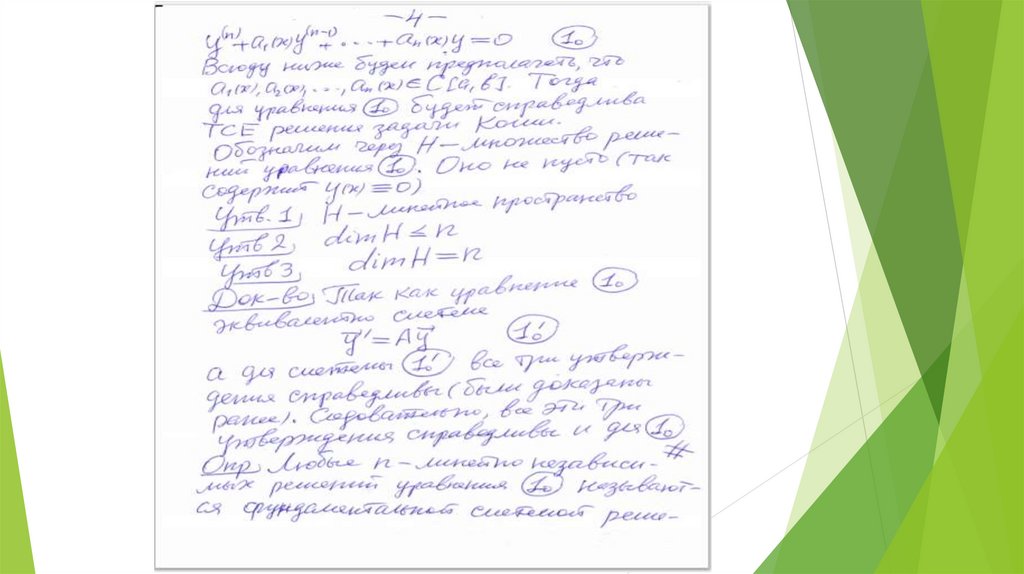 –4–
y⁽ⁿ⁾+a₁(x)y⁽ⁿ⁻¹⁾+...+aₙ(x)y=0 (1₀)
Всюду ниже будем предполагать, что
a₁(x), a₂(x),..., aₙ(x)∈C[a,b]. Тогда
для уравнения (1₀) будет справедлива
ТСЕ решение задачи Коши.
Обозначим через H–множество реше-
ний уравнения (1₀). Оно не пусто (так
содержит y(x)≡0)
Утв. 1, H–линейное пространство
Утв 2, dimH≤n
Утв 3, dimH=n
Док-во, Так как уравнение (1₀)
эквивалентно системе
y̅'=Ay̅ (1₀')
а для системы (1₀') все три утверж-
дения справедливы (были доказаны
ранее). Следовательно, все эти три
утверждения справедливы и для (1₀)
#
Опр Любые n–линейно независи-
мых решений уравнения (1₀) называют-
ся фундаментальной системой реше-